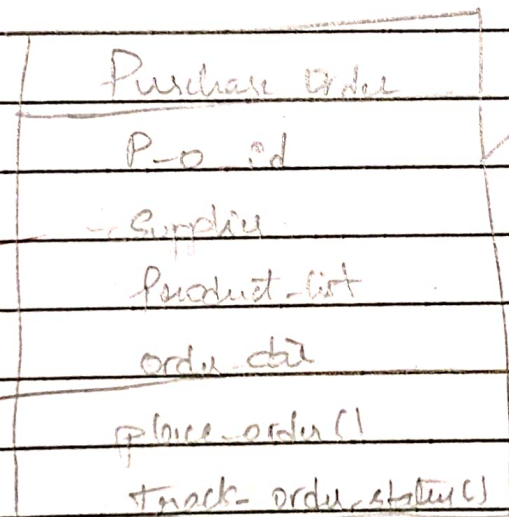 Purchase Order
P-o-id
Supplier
Product-list
order date
place-order()
track-order-status()